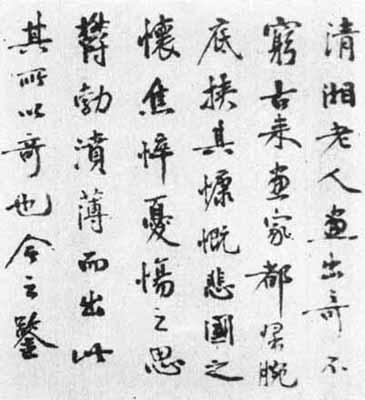 清湘老人畫出奇不
窮古来畫家都
底挟其慷慨悲國之
懷焦悴憂傷之思
鬱勃濆薄而出此
其所以奇也今之鑒